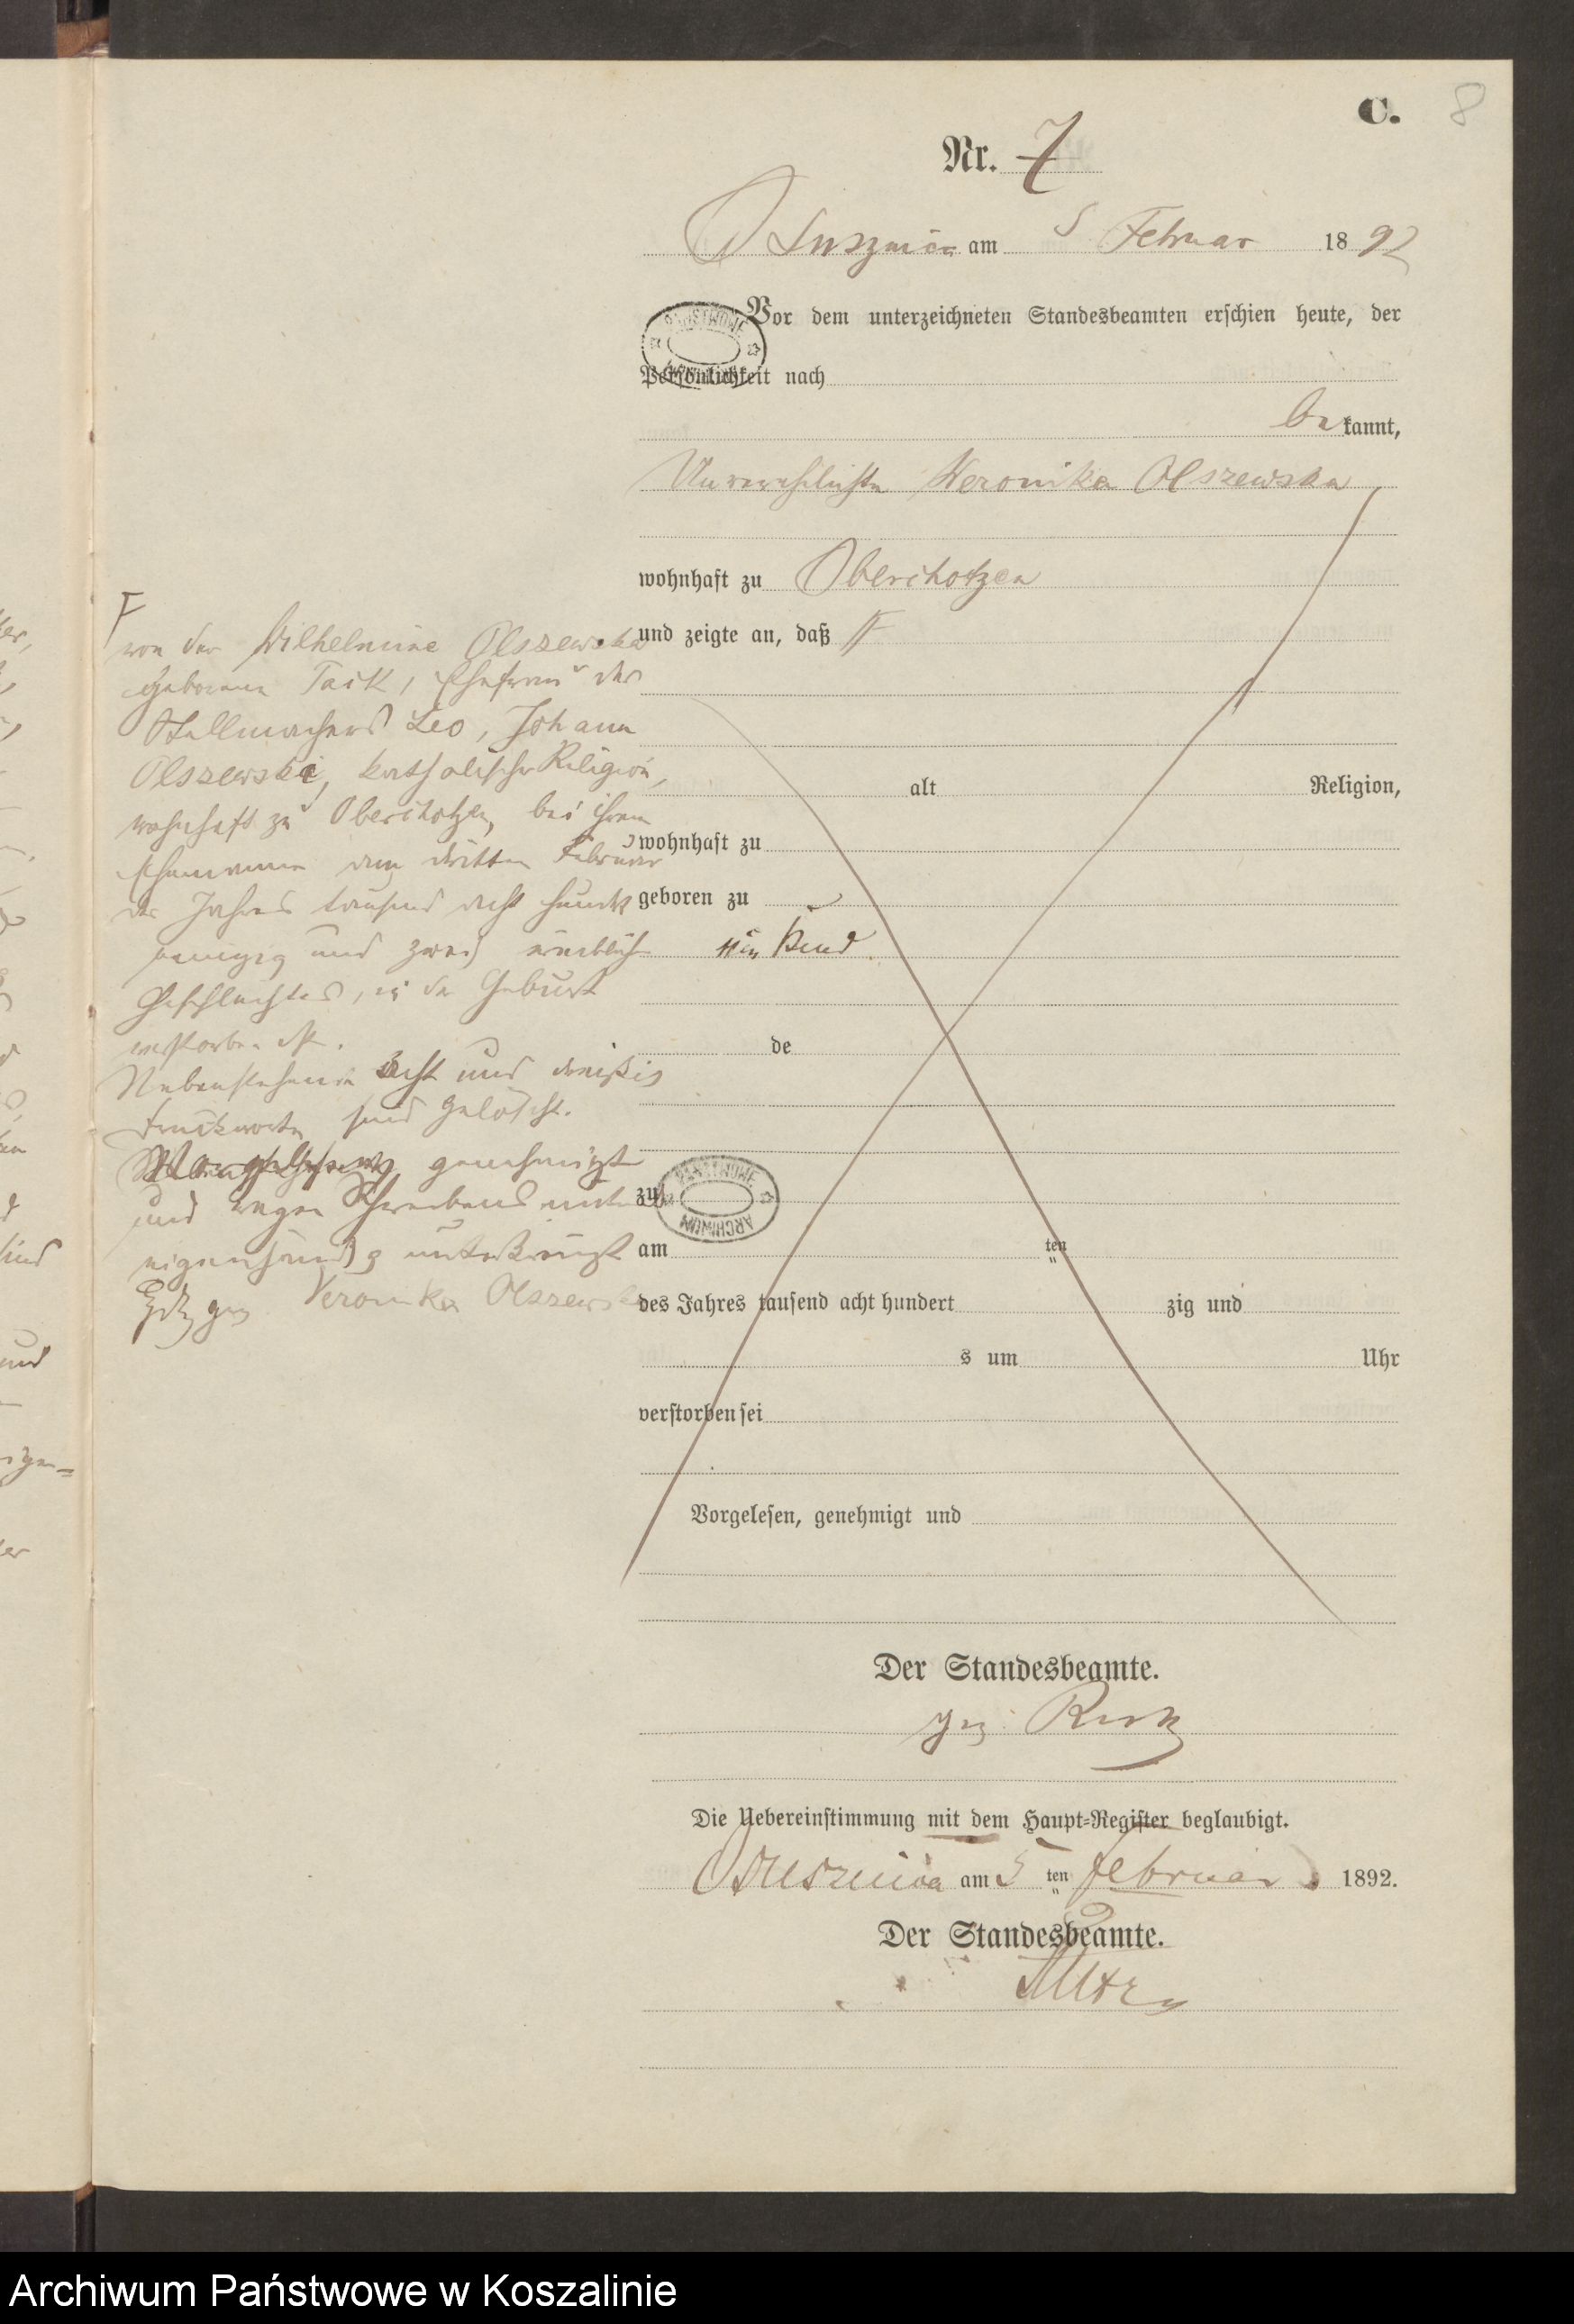 C. 8
Nr. 7
am 5 Februar 1892
Vor dem unterzeichneten Standesbeamten erschien heute, der
Persönlichkeit nach
bekannt,
Unverehelichte Weronika Olszewska
wohnhaft zu Oberchotzen
und zeigte an, daß
alt Religion,
wohnhaft zu
geboren zu
ein Kind
de
zu
am ten
des Jahres tausend acht hundert zig und
s um Uhr
verstorben sei
Vorgelesen, genehmigt und
von der Wilhelmine Olszewska
geborenen Tack, Ehefrau des
Stellmachers Leo, Johann
Olszewski, katholischer Religion,
wohnhaft zu Oberchotzen, bei ihrem
Ehemanne am dritten Februar
des Jahres tausend acht hundert
neunzig und zwei weiblichen
Geschlechtes, in der Geburt
verstorben ist.
Nebenstehende acht und dreißig
Druckworte sind gelöscht.
genehmigt
und wegen Schreibens
eigenhändig unterkreuzt
gez Veronika Olszewska
Der Standesbeamte.
gez.
Die Uebereinstimmung mit dem Haupt-Register beglaubigt.
am 5 ten Februar 1892.
Der Standesbeamte.
PAŃSTWOWE
ARCHIWUM
Archiwum Państwowe w Koszalinie